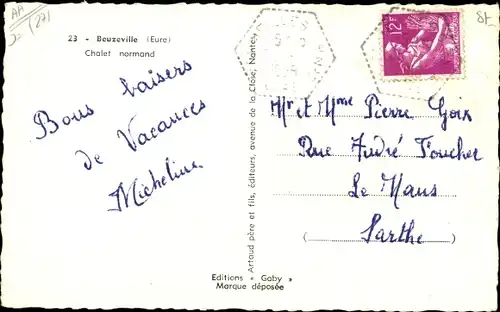 AA
23 - Beuzeville (Eure)
Chalet normand
Bons baisers
de Vacances
Micheline
Artaud père et fils, éditeurs, avenue de la Close, Nantes
Editions « Gaby »
Marque déposée
12F
Mr et Mme Pierre Goix
Rue André Foucher
Le Mans
(Sarthe)